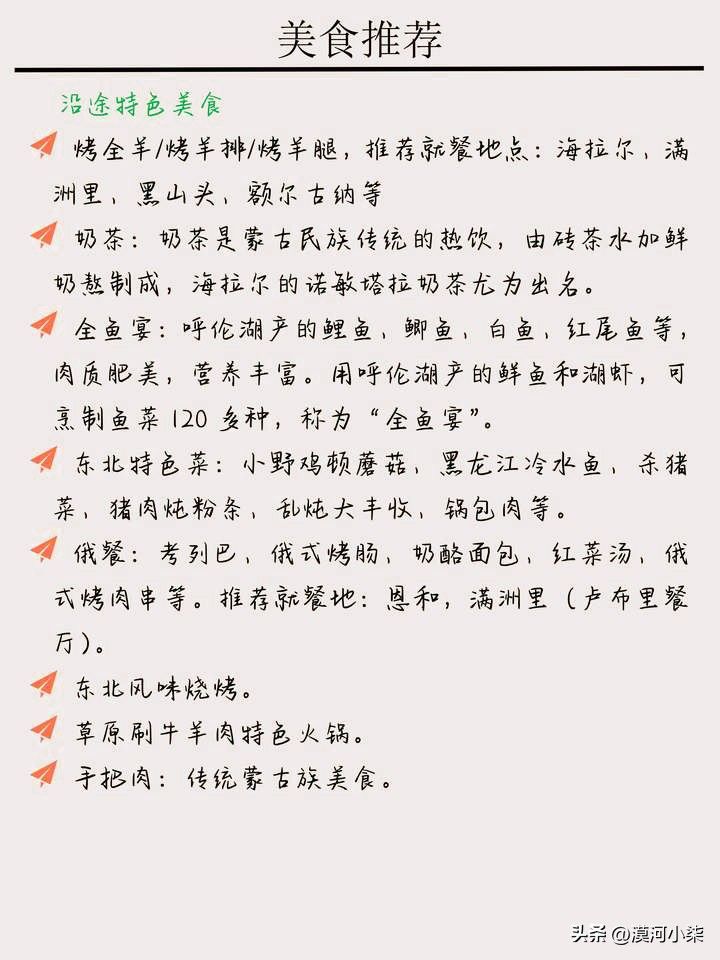 美食推荐
沿途特色美食
烤全羊/烤羊排/烤羊腿，推荐就餐地点：海拉尔、满
洲里、黑山头、额尔古纳等
奶茶：奶茶是蒙古民族传统的热饮，由砖茶水加鲜
奶熬制成，海拉尔的诺敏塔拉奶茶尤为出名。
全鱼宴：呼伦湖产的鲤鱼、鲫鱼、白鱼、红尾鱼等，
肉质肥美，营养丰富。用呼伦湖产的鲜鱼和湖虾，可
烹制鱼菜120多种，称为“全鱼宴”。
东北特色菜：小野鸡顿蘑菇、黑龙江冷水鱼、杀猪
菜，猪肉炖粉条，乱炖大丰收，锅包肉等。
俄餐：考列巴、俄式烤肠、奶酪面包、红菜汤、俄
式烤肉串等。推荐就餐地：恩和，满洲里（卢布里餐
厅）。
东北风味烧烤。
草原刷牛羊肉特色火锅。
手把肉：传统蒙古族美食。
头条@漠河小柒